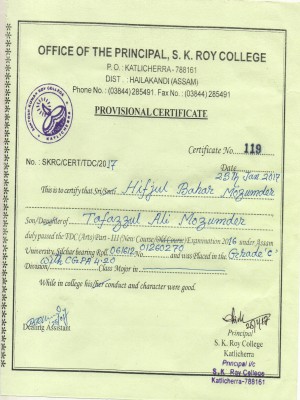 OFFICE OF THE PRINCIPAL, S. K. ROY COLLEGE
P. O. : KATLICHERRA- 788161
DIST . : HAILAKANDI (ASSAM)
Phone No- : (03844) 285491. Fax No.: (03844) 285491
PROVISIONAL CERTIFICATE
Certificate No. 119
No. : SKRC/CERT/TDC/2017
Date 25th Jan 2017
This is to certify that Sri/Smti. Hifzul Bahar Mozumder
Son/Daughter of Tafazzul Ali Mozumder
duly passed the TDC (Arts) Part - III (New Course/Old Course) Examination 2016 under Assam
University, Silchar bearing Roll. 061612 No. 01260270 and was Placed in the Grade "C"
Division With CGPA 4.20 Class Major in
While in college his/her conduct and character were good.
Dealing Assistant
Principal
S. K. Roy College
Katlicherra
Principal i/c
S. K. Roy College
Katlicherra-788161